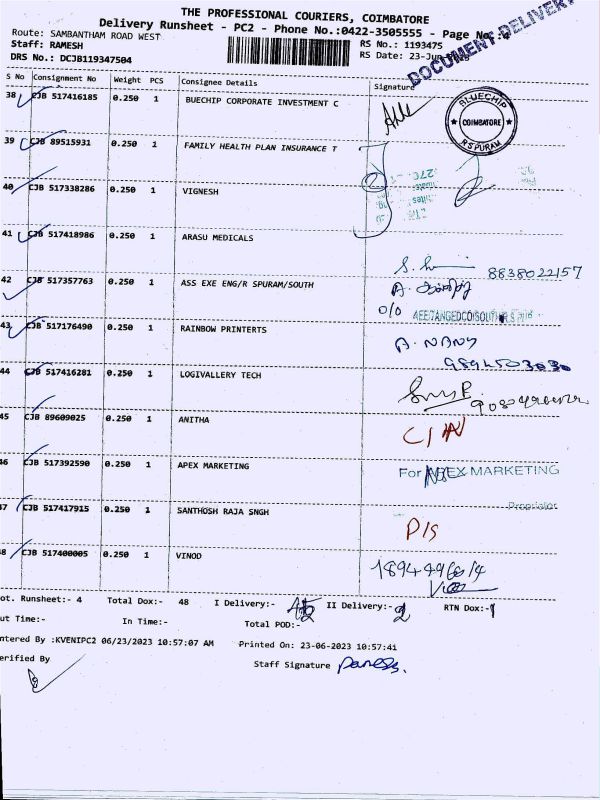 THE PROFESSIONAL COURIERS, COIMBATORE
Delivery Runsheet - PC2 - Phone No.:0422-3505555 - Page No
DOCUMENT-DELIVERY
Route: SAMBANTHAM ROAD WEST
Staff: RAMESH
DRS No.: DCJB119347504
RS No.: 1193475
RS Date: 23-Jun
S No Consignment No Weight PCS Consignee Details Signature
38 CJB 517416185 0.250 1 BUECHIP CORPORATE INVESTMENT C
BLUECHIP
COIMBATORE
R S PURAM
39 CJB 89515931 0.250 1 FAMILY HEALTH PLAN INSURANCE T
40 CJB 517338286 0.250 1 VIGNESH
41 CJB 517418986 0.250 1 ARASU MEDICALS
8838022157
42 CJB 517357763 0.250 1 ASS EXE ENG/R SPURAM/SOUTH
O/O
43 CJB 517176490 0.250 1 RAINBOW PRINTERTS
44 CJB 517416281 0.250 1 LOGIVALLERY TECH
45 CJB 89609025 0.250 1 ANITHA
46 CJB 517392590 0.250 1 APEX MARKETING
For APEX MARKETING
Proprietor
47 CJB 517417915 0.250 1 SANTHOSH RAJA SNGH
P/S
48 CJB 517400005 0.250 1 VINOD
ot. Runsheet:- 4 Total Dox:- 48 I Delivery:- II Delivery:- 2 RTN Dox:-1
ut Time:- In Time:- Total POD:-
ntered By :KVENIPC2 06/23/2023 10:57:07 AM Printed On: 23-06-2023 10:57:41
erified By Staff Signature